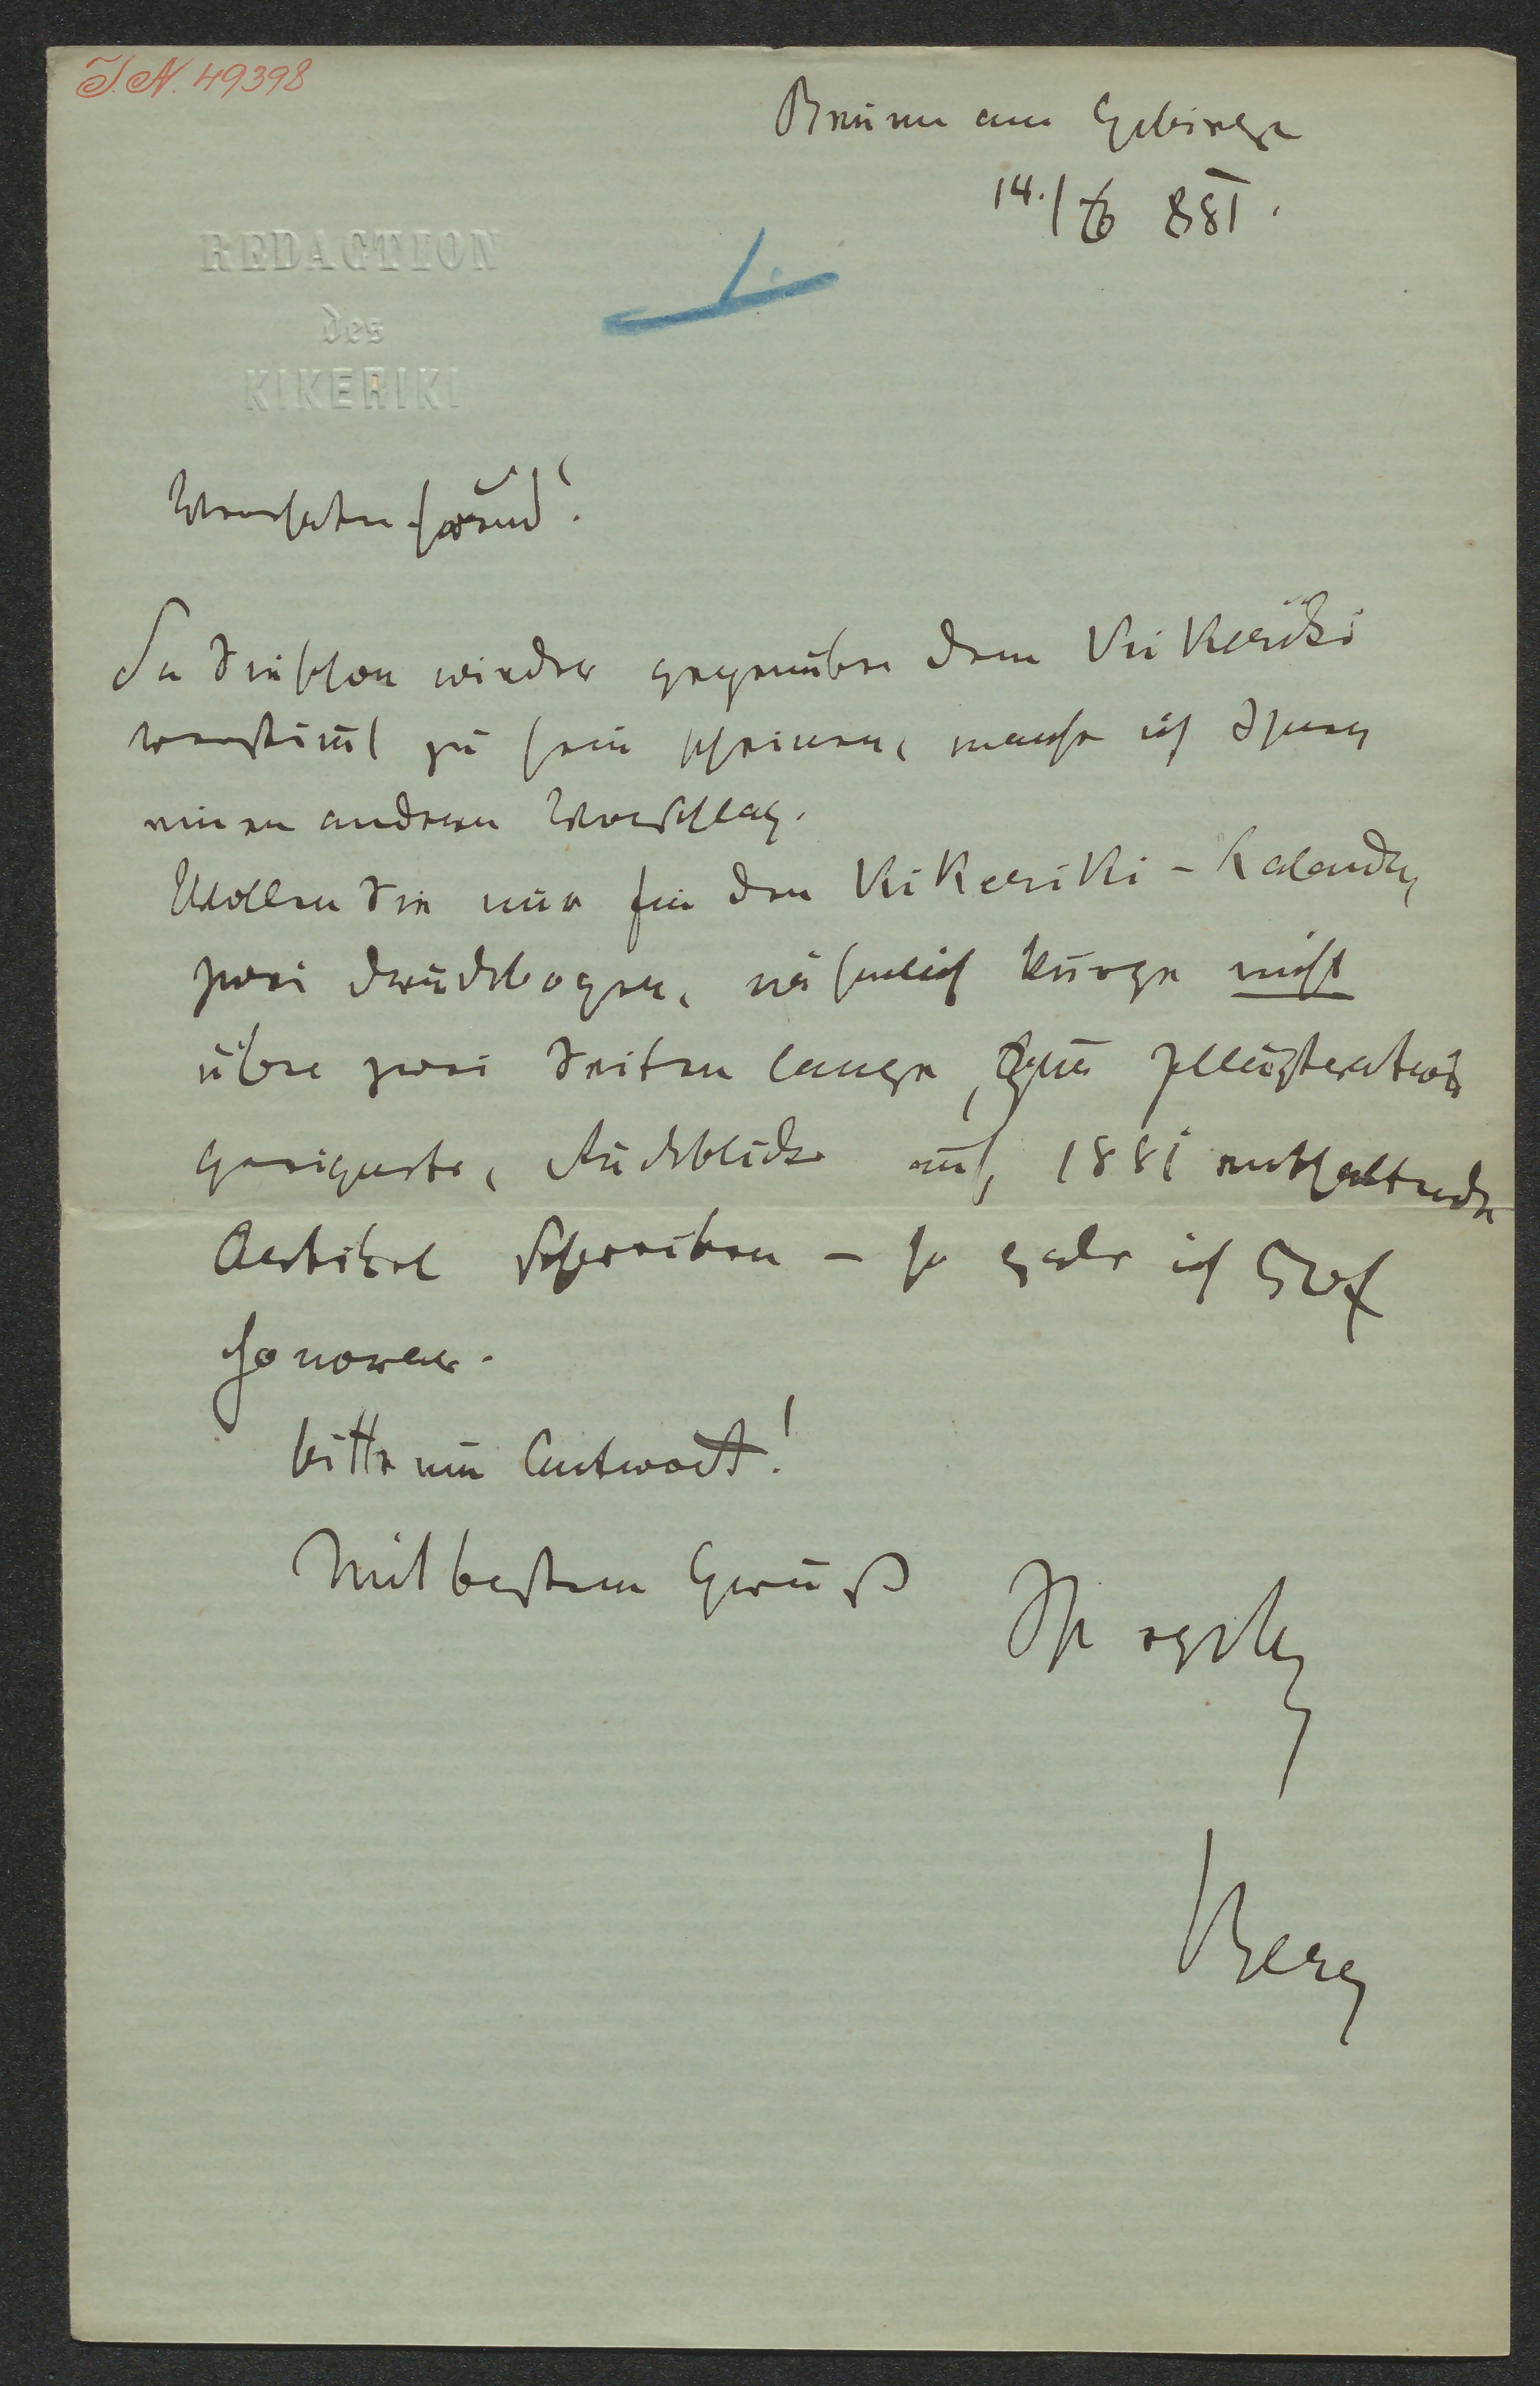 I.N. 49398
Brunn am Gebirge
14./6 881.
REDACTION
des
KIKERIKI
Verehrter Freund!
Da Sie schon wieder gegenüber dem Kikeriki
verstimt zu sein scheinen, mache ich Ihnen
einen anderen Vorschlag.
Wollen Sie mir für den Kikeriki-Kalender
zwei Druckbogen, nähmlich kurze nicht
über zwei Seiten lange, zur Illustration
geeignete, Rückblicke auf 1881 enthaltende
Artikel schreiben – so gebe ich 50 f
Honorar.
bitte um Antwort!
Mit bestem Gruß
Ihr erg
Berg